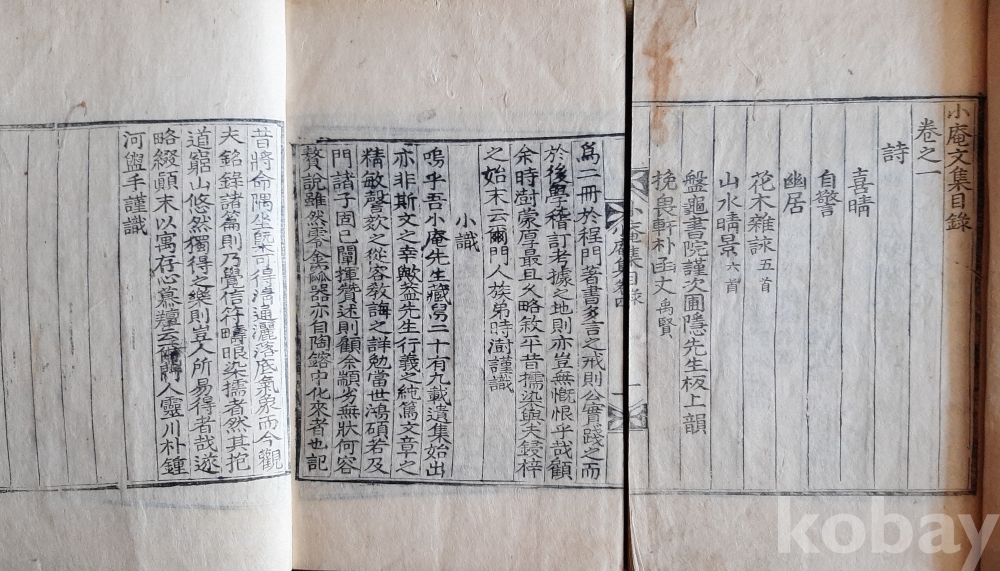 小庵文集目錄
卷之一
詩
喜晴
自警
幽居
花木雜詠五首
山水晴景六首
盤龜書院謹次圃隱先生板上韻
挽畏軒朴函丈禹賢
小庵集目錄 一
爲二冊於程門著書多言之戒則公實踐之而
於後學稽訂考據之地則亦豈無慨恨乎哉顧
余時澍蒙厚最且久略敘平昔擩染與夫鋟梓
之始末云爾門人族弟時澍謹識
小識
嗚乎吾小庵先生藏舃二十有九載遺集始出
亦非斯文之幸歟蓋先生行義之純篤文章之
精敏謦欬之從容敎誨之詳勉當世鴻碩若及
門諸子固已闡揮贊述則顧余顓劣無狀何容
贅說雖然零禽器亦自陶鎔中化來者也記
昔將命隅坐槩可得淸通灑落底氣象而今觀
夫銘錄諸篇則乃覺信符疇眼染擩者然其抱
道窮山悠然獨得之樂則豈人所易得者哉遂
略綴顚末以寓存心慕羶云爾門人靈川朴鍾
河盥手謹識
kobay